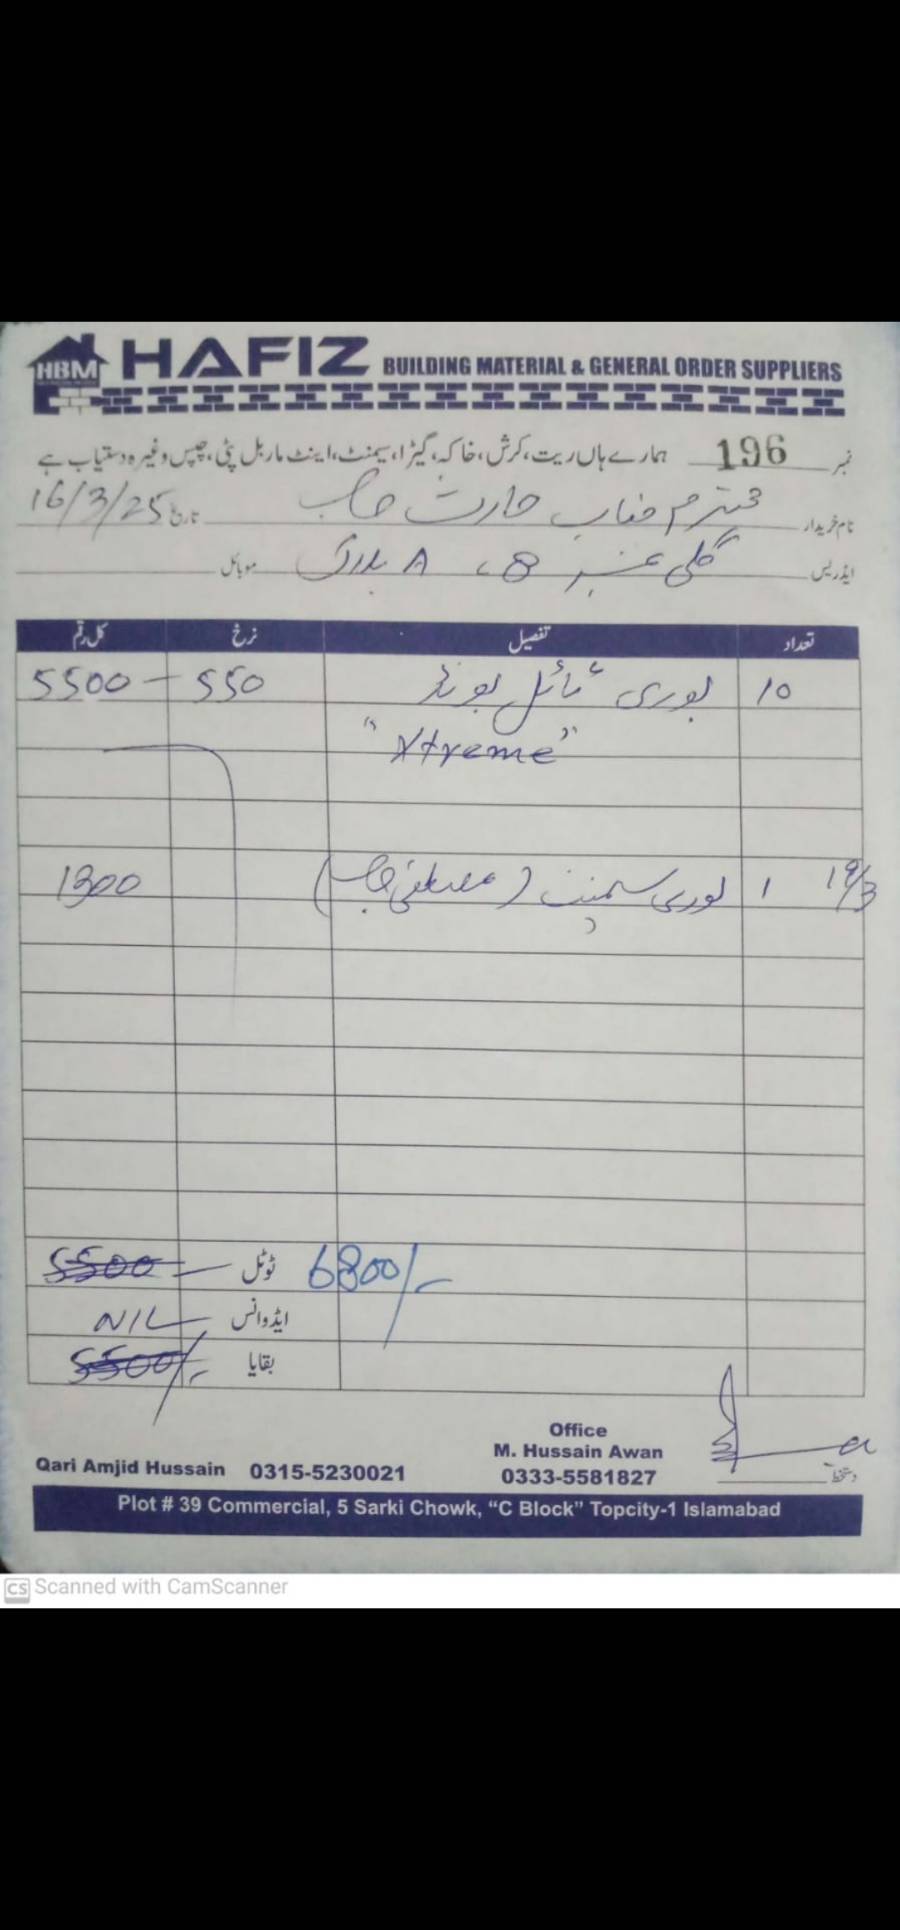 HBM HAFIZ BUILDING MATERIAL & GENERAL ORDER SUPPLIERS
نمبر 196 ہمارے ہاں ریت، کرش، خاکہ، گیڑا، سیمنٹ، اینٹ ماربل پٹی، چپس وغیرہ دستیاب ہے
نام خریدار محترم جناب حارث صاحب تاریخ 16/3/25
ایڈریس گلی نمبر 8، A بلاک موبائل
تعداد تفصیل نرخ کل رقم
10 بوری ٹائل بونڈ 550 5500
"Xtreme"
19/3 1 بوری سیمنٹ (مصطفیٰ صاحب) 1300
6800/- ٹوٹل 5500
ایڈوانس NIL
بقایا 5500/-
Office
M. Hussain Awan
Qari Amjid Hussain 0315-5230021 0333-5581827 دستخط
Plot # 39 Commercial, 5 Sarki Chowk, "C Block" Topcity-1 Islamabad
CS Scanned with CamScanner